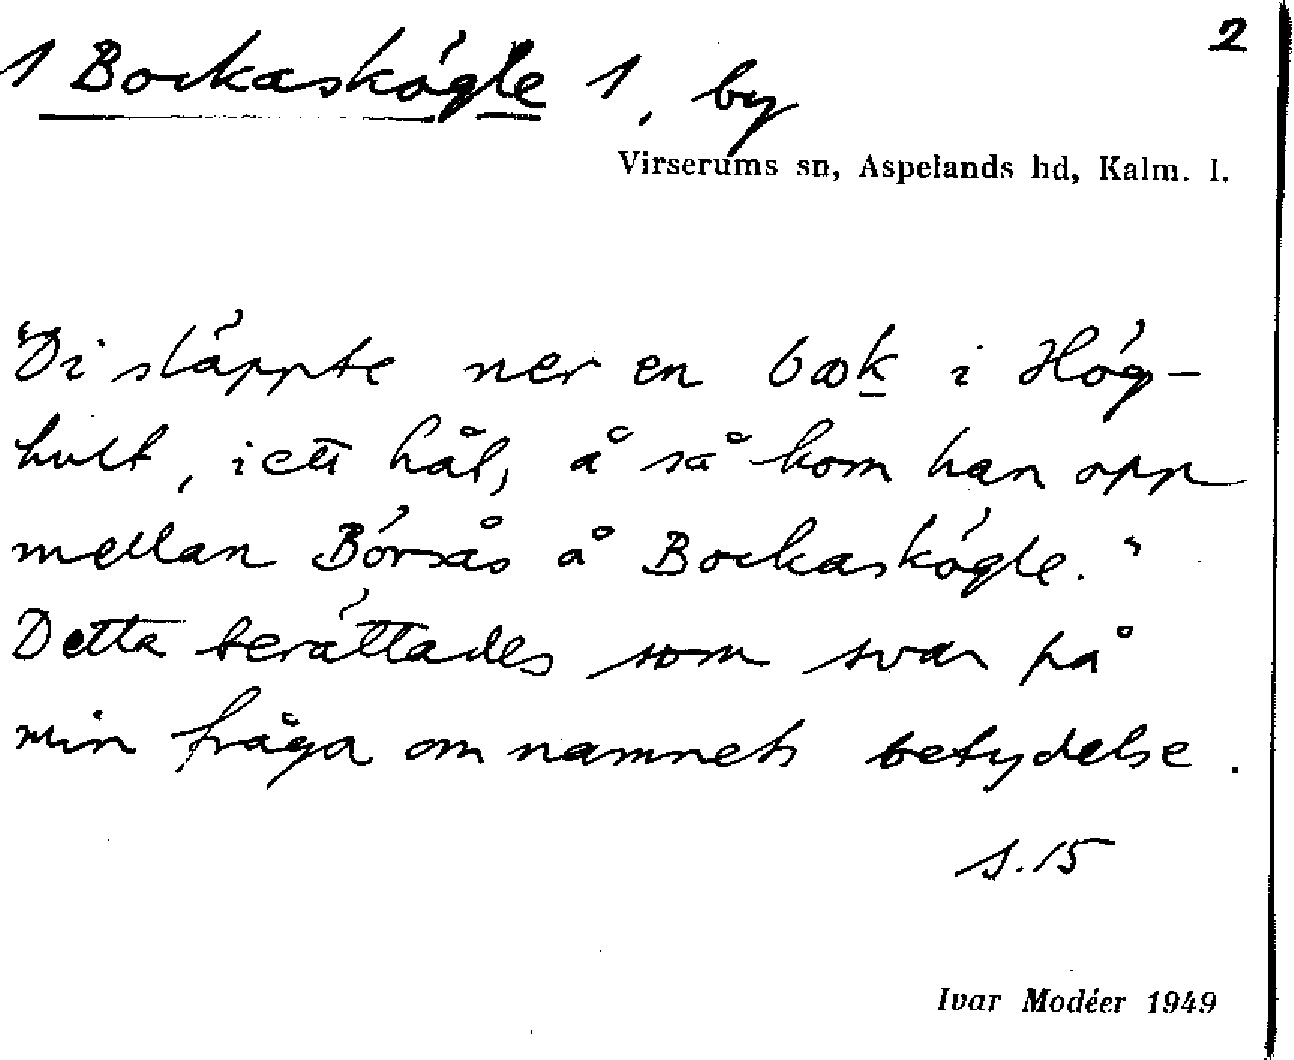 2
1 Bockaskögle 1, by
Virserums sn, Aspelands hd, Kalm. l.
"Di släppte ner en bæk i Hög-
hult, i ett hål, å så kom han opp
mellan Börsås å Bockaskögle."
Detta berättades som svar på
min fråga om namnets betydelse.
s. 15
Ivar Modéer 1949